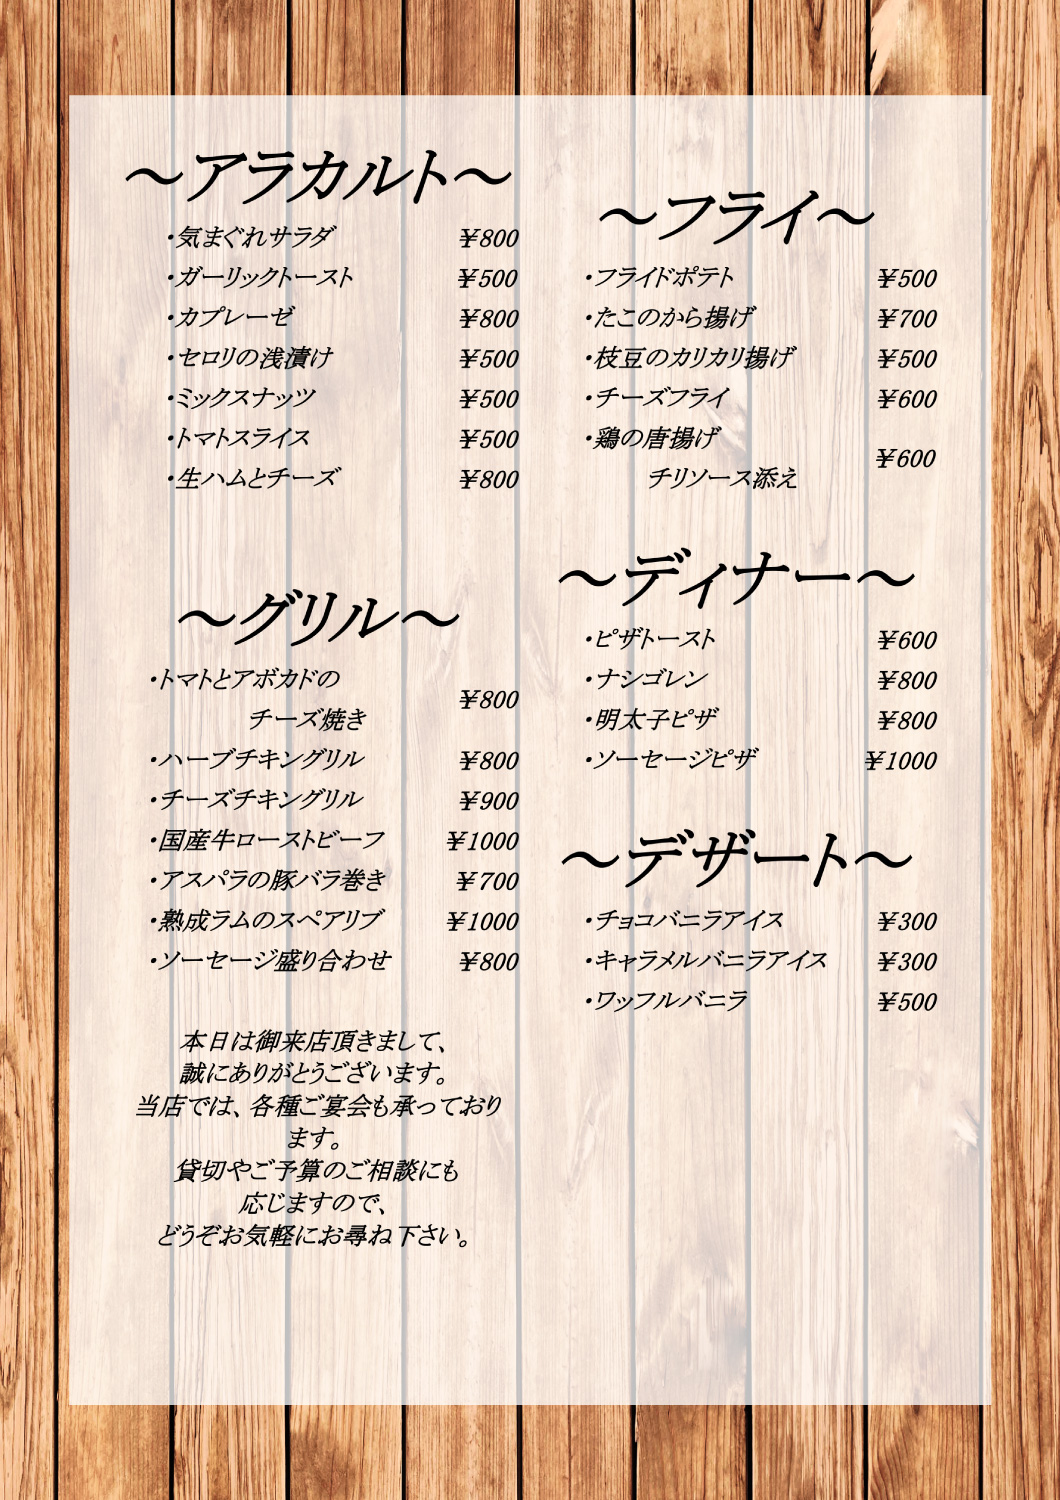 ～アラカルト～
・気まぐれサラダ ￥800
・ガーリックトースト ￥500
・カプレーゼ ￥800
・セロリの浅漬け ￥500
・ミックスナッツ ￥500
・トマトスライス ￥500
・生ハムとチーズ ￥800
～グリル～
・トマトとアボカドの
チーズ焼き ￥800
・ハーブチキングリル ￥800
・チーズチキングリル ￥900
・国産牛ローストビーフ ￥1000
・アスパラの豚バラ巻き ￥700
・熟成ラムのスペアリブ ￥1000
・ソーセージ盛り合わせ ￥800
本日は御来店頂きまして、
誠にありがとうございます。
当店では、各種ご宴会も承っており
ます。
貸切やご予算のご相談にも
応じますので、
どうぞお気軽にお尋ね下さい。
～フライ～
・フライドポテト ￥500
・たこのから揚げ ￥700
・枝豆のカリカリ揚げ ￥500
・チーズフライ ￥600
・鶏の唐揚げ
チリソース添え ￥600
～ディナー～
・ピザトースト ￥600
・ナシゴレン ￥800
・明太子ピザ ￥800
・ソーセージピザ ￥1000
～デザート～
・チョコバニラアイス ￥300
・キャラメルバニラアイス ￥300
・ワッフルバニラ ￥500